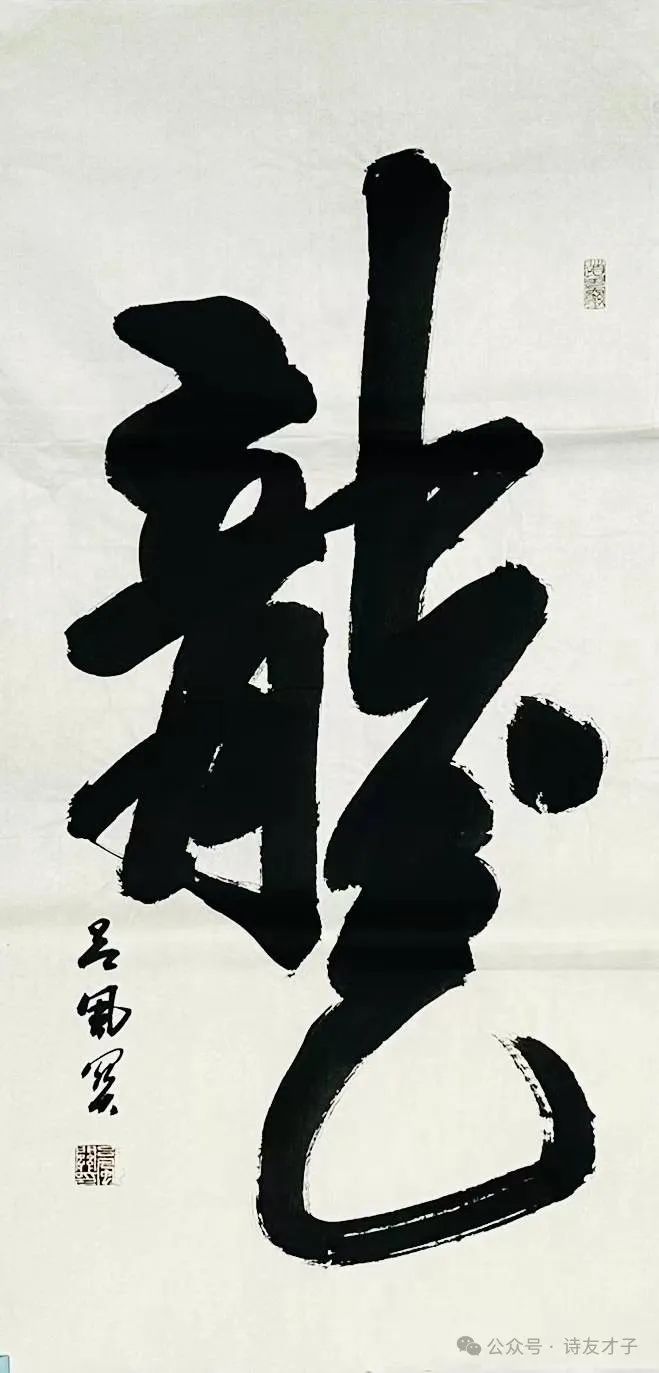 龍
吕凤宝
公众号·诗友才子